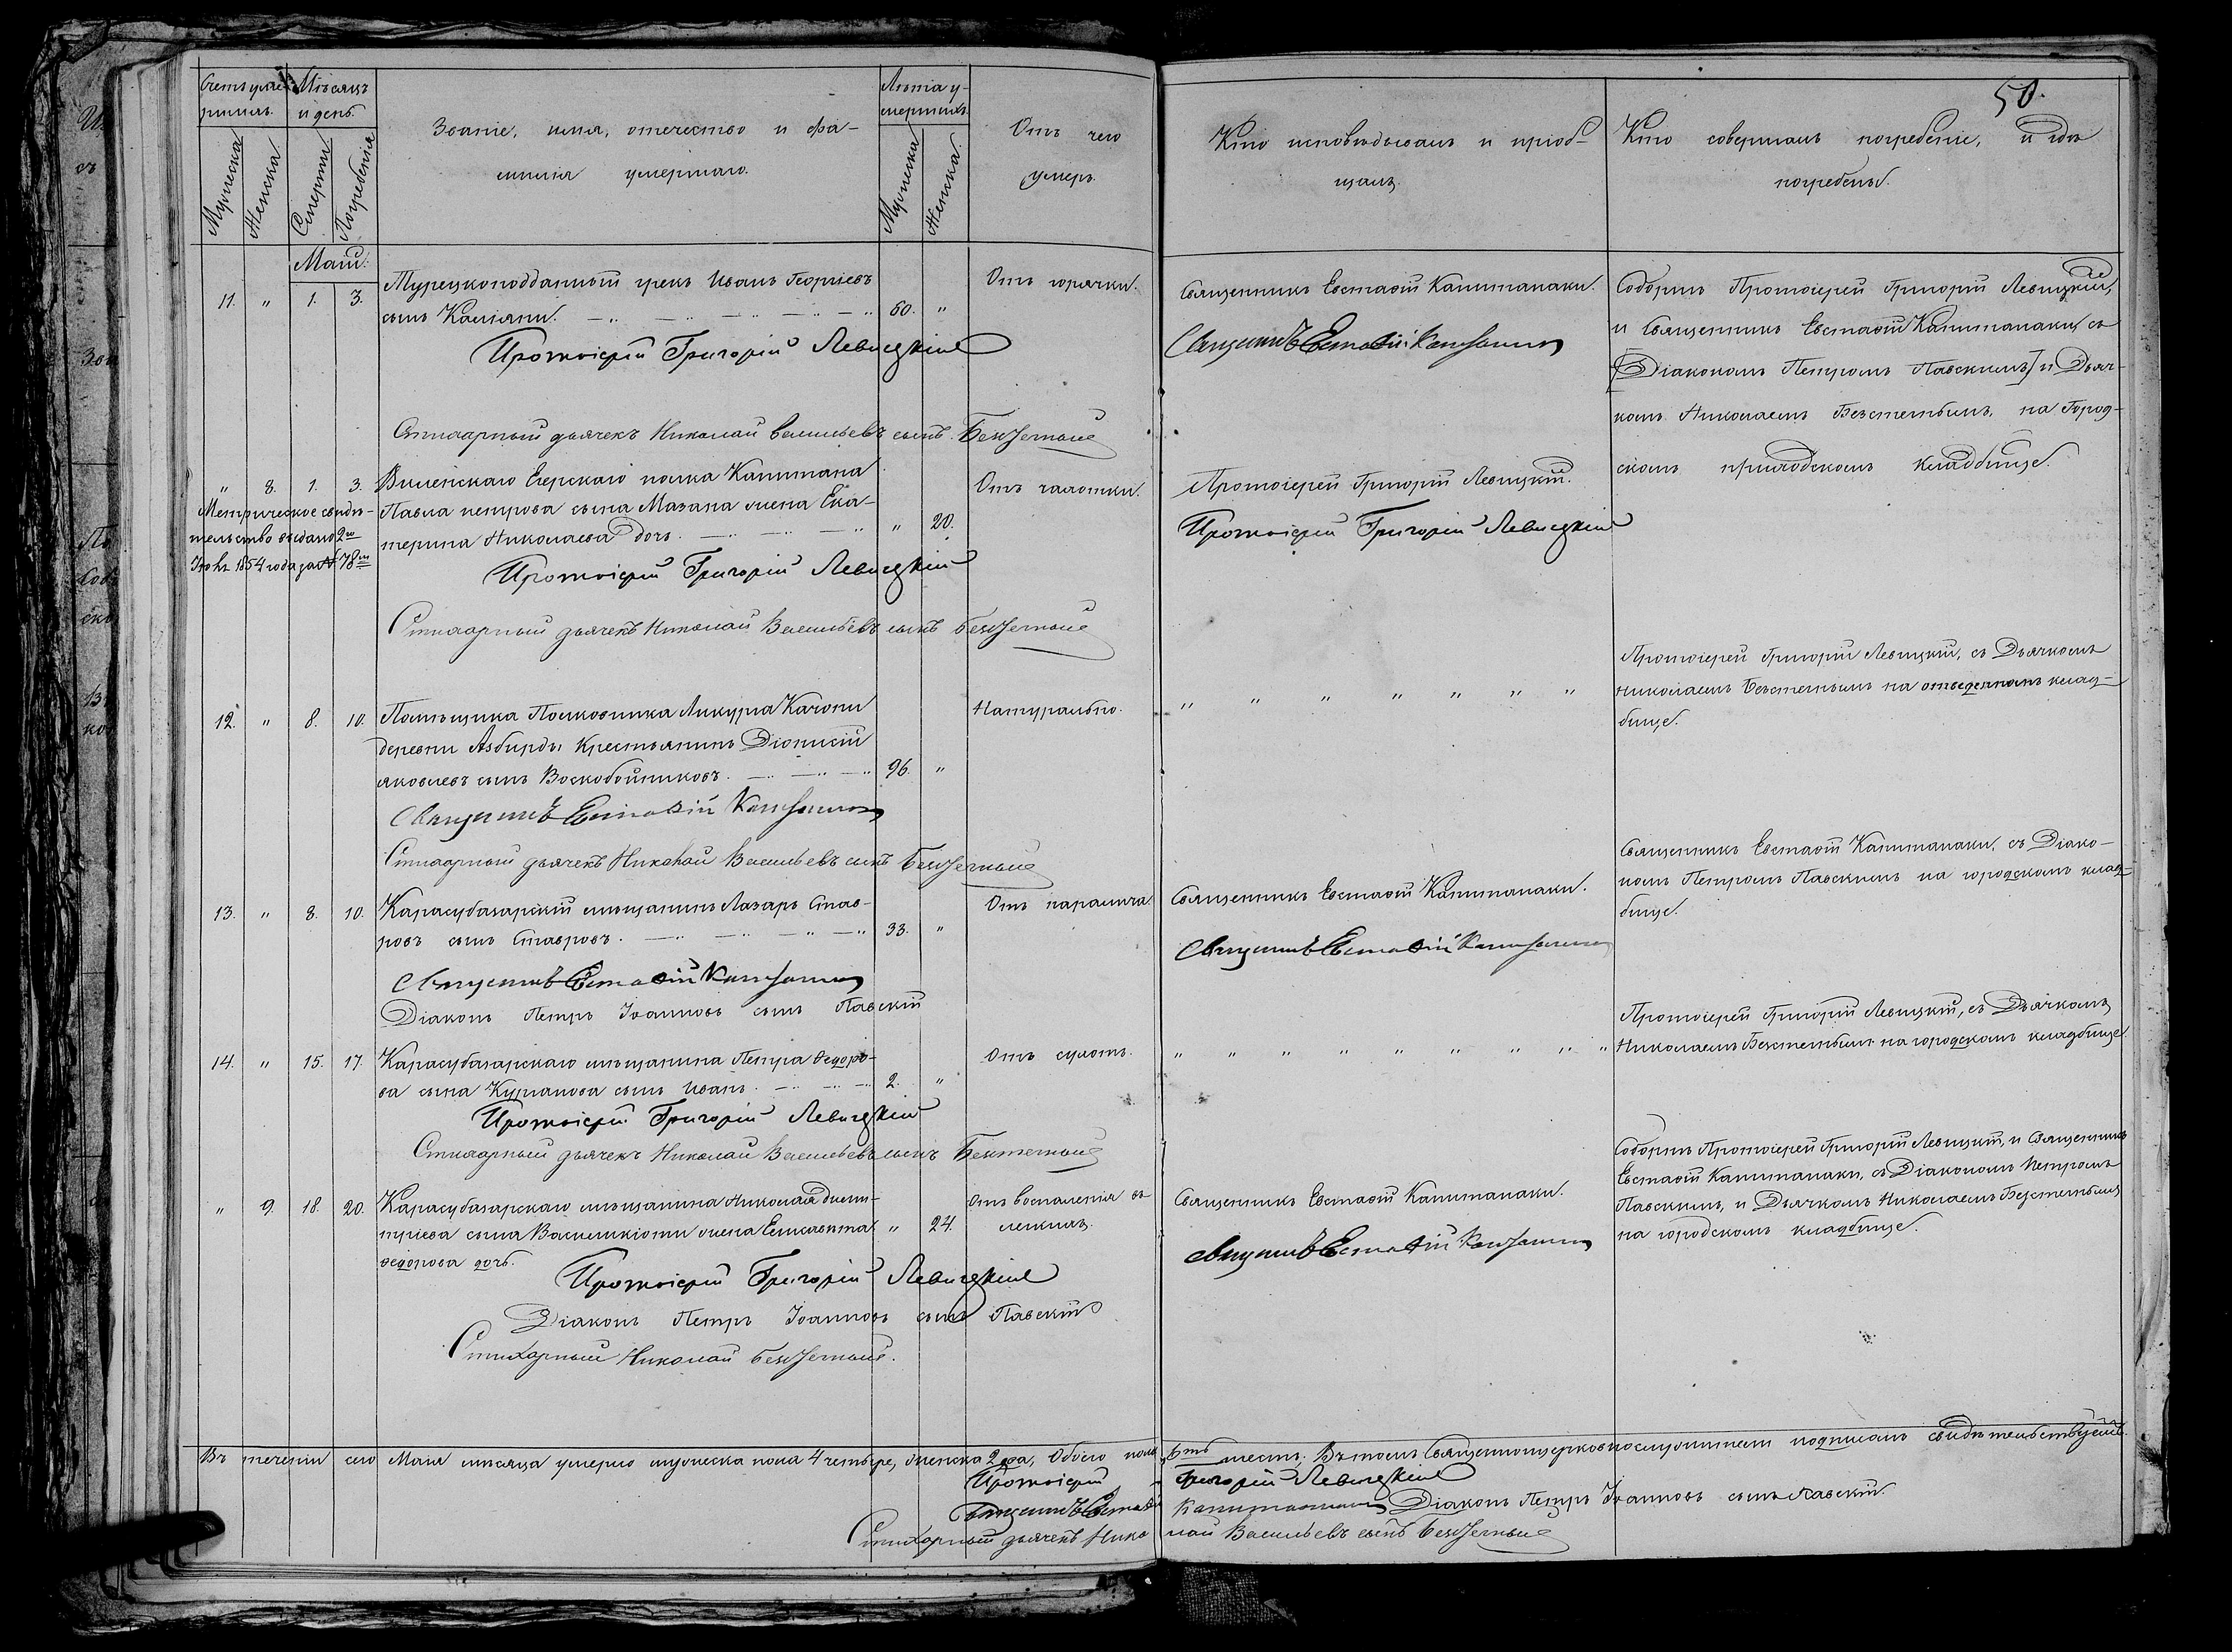 50.
Счетъ умер-
шихъ.
Мѣсяцъ
и день.
Званіе, имя, отечество и фа-
милія умершаго.
Лѣта у-
мершихъ.
Отъ чего
умеръ.
Кто исповѣдывалъ и пріоб-
щалъ.
Кто совершалъ погребеніе, и гдѣ
погребены.
Мужеска
Женска.
Смерти
Погребенія
Мужеска
Женска.
Маій.
11. " 1. 3. Турецкоподданный грекъ Иванъ Георгіевъ
сынъ 60. "
Отъ горячки.
Священникъ Евстаѳій Капитанаки.
Священникъ Евстаѳій Капитанаки
Соборнѣ Протоіерей Григорій Левицкій,
и Священникъ Евстаѳій Капитанаки, съ
[Діакономъ Петромъ Павскимъ] и Дьяч-
комъ Николаемъ Безстетнымъ, на Город-
скомъ приходскомъ кладбищѣ.
Протоіерей Григорій Левицкій
Стихарный дьячекъ Николай Васильевъ сынъ
" 8. 1. 3. Виленскаго Егерскаго полка Капитана
Павла петрова сына Мазана жена Ека-
терина Николаева дочь. " 20.
Отъ чахотки.
Протоіерей Григорій Левицкій.
Протоіерей Григорій Левицкій
Метрическое свидѣ-
тельство выдано 2го
1854 года за № 78м
Протоіерей Григорій Левицкій
Стихарный дьячекъ Николай Васильевъ сынъ
Протоіерей Григорій Левицкій, съ Дьячкомъ
Николаемъ Безстетнымъ на отведенномъ клад-
бищѣ.
12. " 8. 10. Помѣщика Полковника Ликурга Качони
деревни Азбирды Крестьянинъ Діонисій
яковлевъ сынъ Воскобойниковъ. 96. "
Натурально.
" " " " " " "
Священникъ Евстаѳій Капитанаки
Стихарный дьячекъ Николай Васильевъ сынъ
Священникъ Евстаѳій Капитанаки, съ Діако-
номъ Петромъ Павскимъ на городскомъ клад-
бищѣ.
13. " 8. 10. Карасубазарскій мѣщанинъ Лазарь Став-
ровъ сынъ Ставровъ. 33. "
Отъ паралича
Священникъ Евстаѳій Капитанаки.
Священникъ Евстаѳій Капитанаки
Священникъ Евстаѳій Капитанаки
Діаконъ Петръ Іоанновъ сынъ Павскій
Протоіерей Григорій Левицкій, съ Дьячкомъ
Николаемъ Безстетнымъ на городскомъ кладбищѣ.
14. " 15. 17. Карасубазарскаго мѣщанина Петра Ѳедоро-
ва сына сынъ Иванъ. 2. "
Отъ сухотъ.
" " " " " " " " "
Протоіерей Григорій Левицкій
Стихарный дьячекъ Николай Васильевъ сынъ
Соборнѣ Протоіерей Григорій Левицкій, и Священникъ
Евстаѳій Капитанаки, съ Діакономъ Петромъ
Павскимъ, и Дьячкомъ Николаемъ Безстетнымъ
на городскомъ кладбищѣ.
" 9. 18. 20. Карасубазарскаго мѣщанина Николая дмит-
ріева сына Василикіоти жена Елисавета
ѳедорова дочь. " 24.
Отъ воспаленія въ
легкихъ.
Священникъ Евстаѳій Капитанаки.
Священникъ Евстаѳій Капитанаки
Протоіерей Григорій Левицкій
Діаконъ Петръ Іоанновъ сынъ Павскій
Стихарный Николай
Въ теченіи сего Маія мѣсяца умерло мужеска пола 4 четыре, женска 2 два, обоего пола 6ть шесть; Въ томъ Священноцерковнослужители подписомъ свидѣтельствуемъ.
Протоіерей Григорій Левицкій
Священникъ Евстаѳій Капитанаки Діаконъ Петръ Іоанновъ сынъ Павскій.
Стихарный дьячекъ Николай Васильевъ сынъ